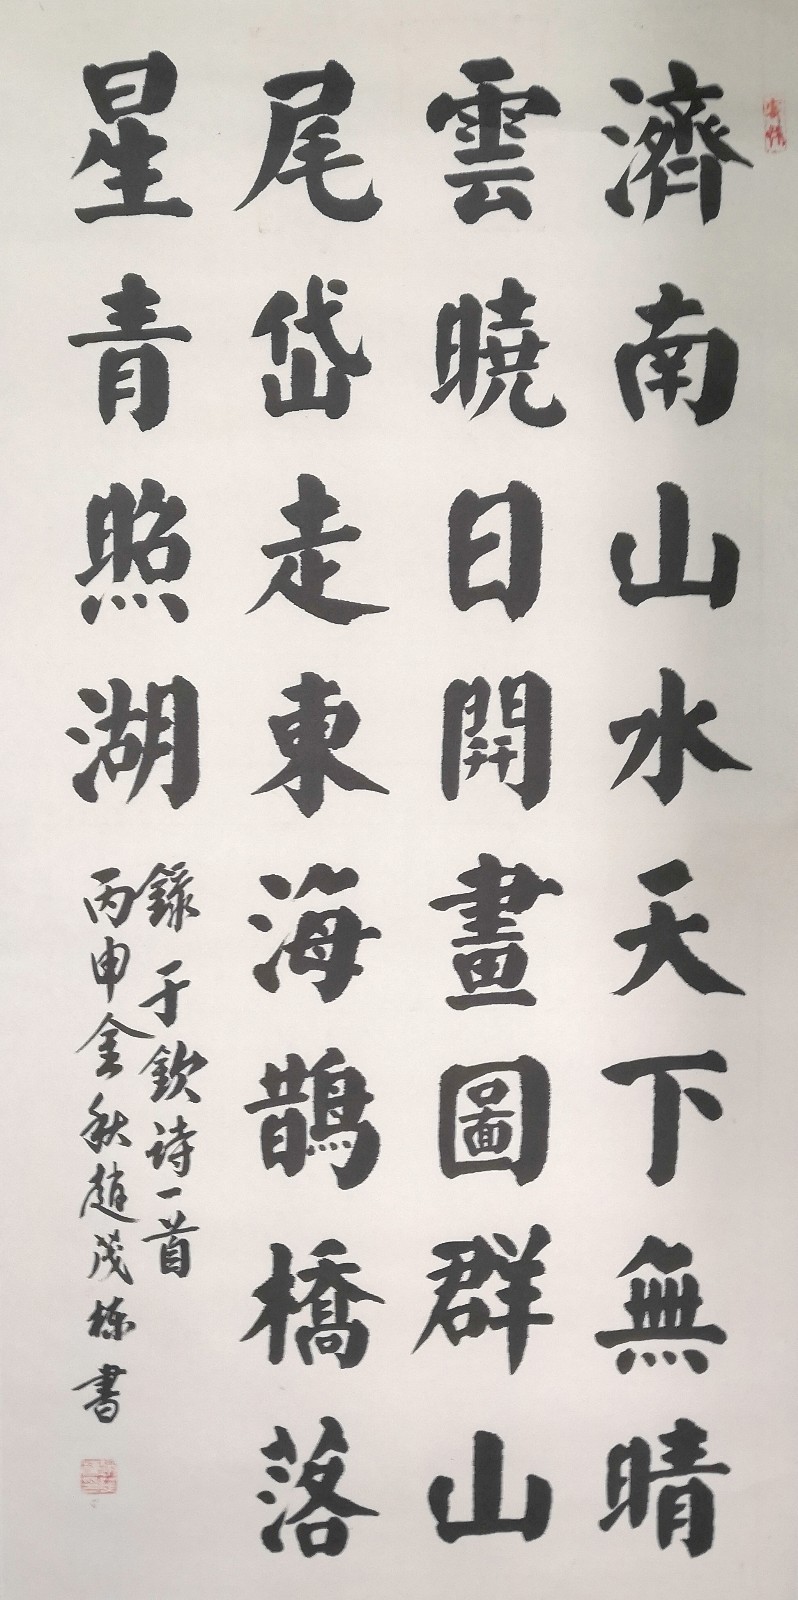 濟南山水天下無晴
雲曉日開畫圖群山
尾岱走東海鵲橋落
星青照湖
錄于欽诗一首
丙申金秋趙茂棟書